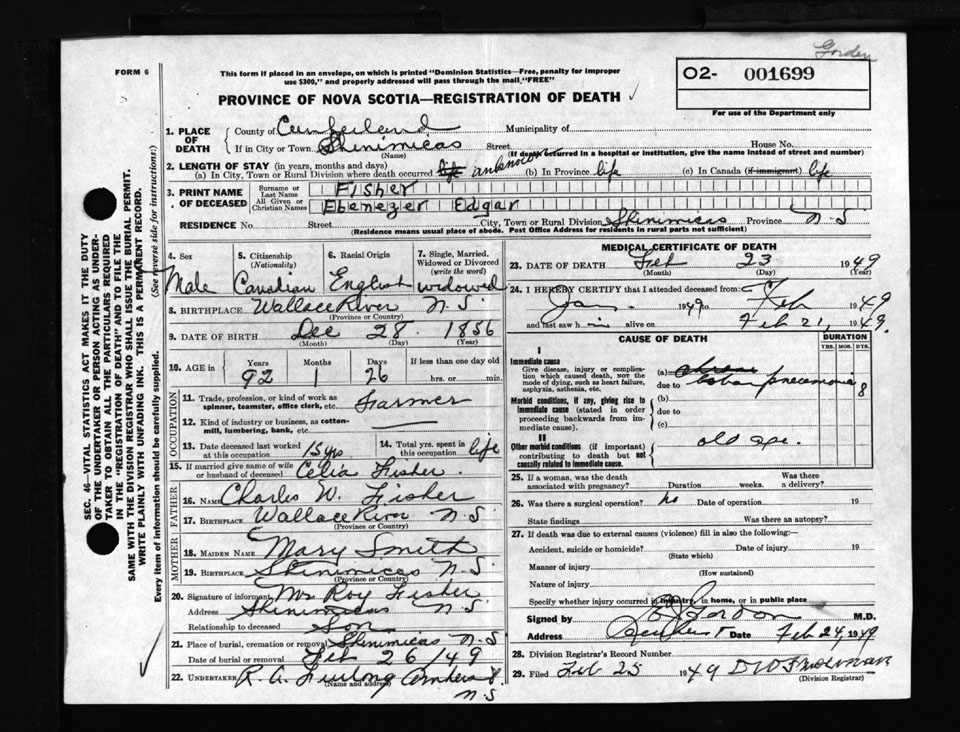 Gordon
FORM 6
This form if placed in an envelope, on which is printed "Dominion Statistics—Free, penalty for improper
use $300," and properly addressed will pass through the mail "FREE"
O2- 001699
For use of the Department only
PROVINCE OF NOVA SCOTIA—REGISTRATION OF DEATH ✓
SEC. 46—VITAL STATISTICS ACT MAKES IT THE DUTY
OF THE UNDERTAKER OR PERSON ACTING AS UNDER-
TAKER TO OBTAIN ALL THE PARTICULARS REQUIRED
IN THE "REGISTRATION OF DEATH" AND TO FILE THE
SAME WITH THE DIVISION REGISTRAR WHO SHALL ISSUE THE BURIAL PERMIT.
WRITE PLAINLY WITH UNFADING INK. THIS IS A PERMANENT RECORD.
Every item of information should be carefully supplied. (See reverse side for instructions:)
1. PLACE OF DEATH County of Cumberland Municipality of
If in City or Town Shinimicas Street House No.
(Name) (If death occurred in a hospital or institution, give the name instead of street and number)
2. LENGTH OF STAY (in years, months and days)
(a) In City, Town or Rural Division where death occurred life unknown (b) In Province life (c) In Canada (if immigrant) life
3. PRINT NAME OF DECEASED Surname or Last Name Fisher
All Given or Christian Names Ebenezer Edgar
RESIDENCE No. Street City, Town or Rural Division Shinimicas Province N.S
(Residence means usual place of abode. Post Office Address for residents in rural parts not sufficient)
4. Sex 5. Citizenship (Nationality) 6. Racial Origin 7. Single, Married, Widowed or Divorced (write the word)
Male Canadian English widowed
8. BIRTHPLACE Wallace River N.S.
(Province or Country)
9. DATE OF BIRTH Dec 28 1856
(Month) (Day) (Year)
10. AGE in Years Months Days If less than one day old
92 1 26 hrs. or min.
OCCUPATION
11. Trade, profession, or kind of work as
spinner, teamster, office clerk, etc. Farmer
12. Kind of industry or business, as cotton-
mill, lumbering, bank, etc.
13. Date deceased last worked at this occupation 15 yrs 14. Total yrs. spent in this occupation life
15. If married give name of wife or husband of deceased Celia Fisher.
FATHER
16. NAME Charles W. Fisher
17. BIRTHPLACE Wallace River N.S.
(Province or Country)
MOTHER
18. MAIDEN NAME Mary Smith
19. BIRTHPLACE Shinimicas N.S.
(Province or Country)
20. Signature of informant Mrs Roy Fisher.
Address Shinimicas N.S.
Relationship to deceased Son
21. Place of burial, cremation or removal Shinimicas N.S
Date of burial or removal Feb 26/49
22. UNDERTAKER R. A. Furlong Amherst
(Name and address) N.S
MEDICAL CERTIFICATE OF DEATH
23. DATE OF DEATH Feb 23 1949
(Month) (Day)
24. I HEREBY CERTIFY that I attended deceased from:
Jan. 1949 to Feb 1949
and last saw him alive on Feb 21, 1949.
CAUSE OF DEATH DURATION
YRS. MOS. DYS.
I
Immediate cause
Give disease, injury or complica-
tion which caused death, NOT the
mode of dying, such as heart failure,
asphyxia, asthenia, etc.
(a)
due to lobar pneumonia 8
Morbid conditions, if any, giving rise to
immediate cause (stated in order
proceeding backwards from im-
mediate cause).
(b)
due to
(c)
II
Other morbid conditions (if important)
contributing to death but not
causally related to immediate cause.
old age.
25. If a woman, was the death associated with pregnancy? Duration weeks. Was there a delivery?
26. Was there a surgical operation? no Date of operation 19
State findings Was there an autopsy?
27. If death was due to external causes (violence) fill in also the following:—
Accident, suicide or homicide? Date of injury 19
(State which)
Manner of injury
(How sustained)
Nature of injury
Specify whether injury occurred in industry, in home, or in public place
Signed by Gordon M.D.
Address Amherst Date Feb 24, 1949
28. Division Registrar's Record Number
29. Filed Feb 25 1949
(Division Registrar)